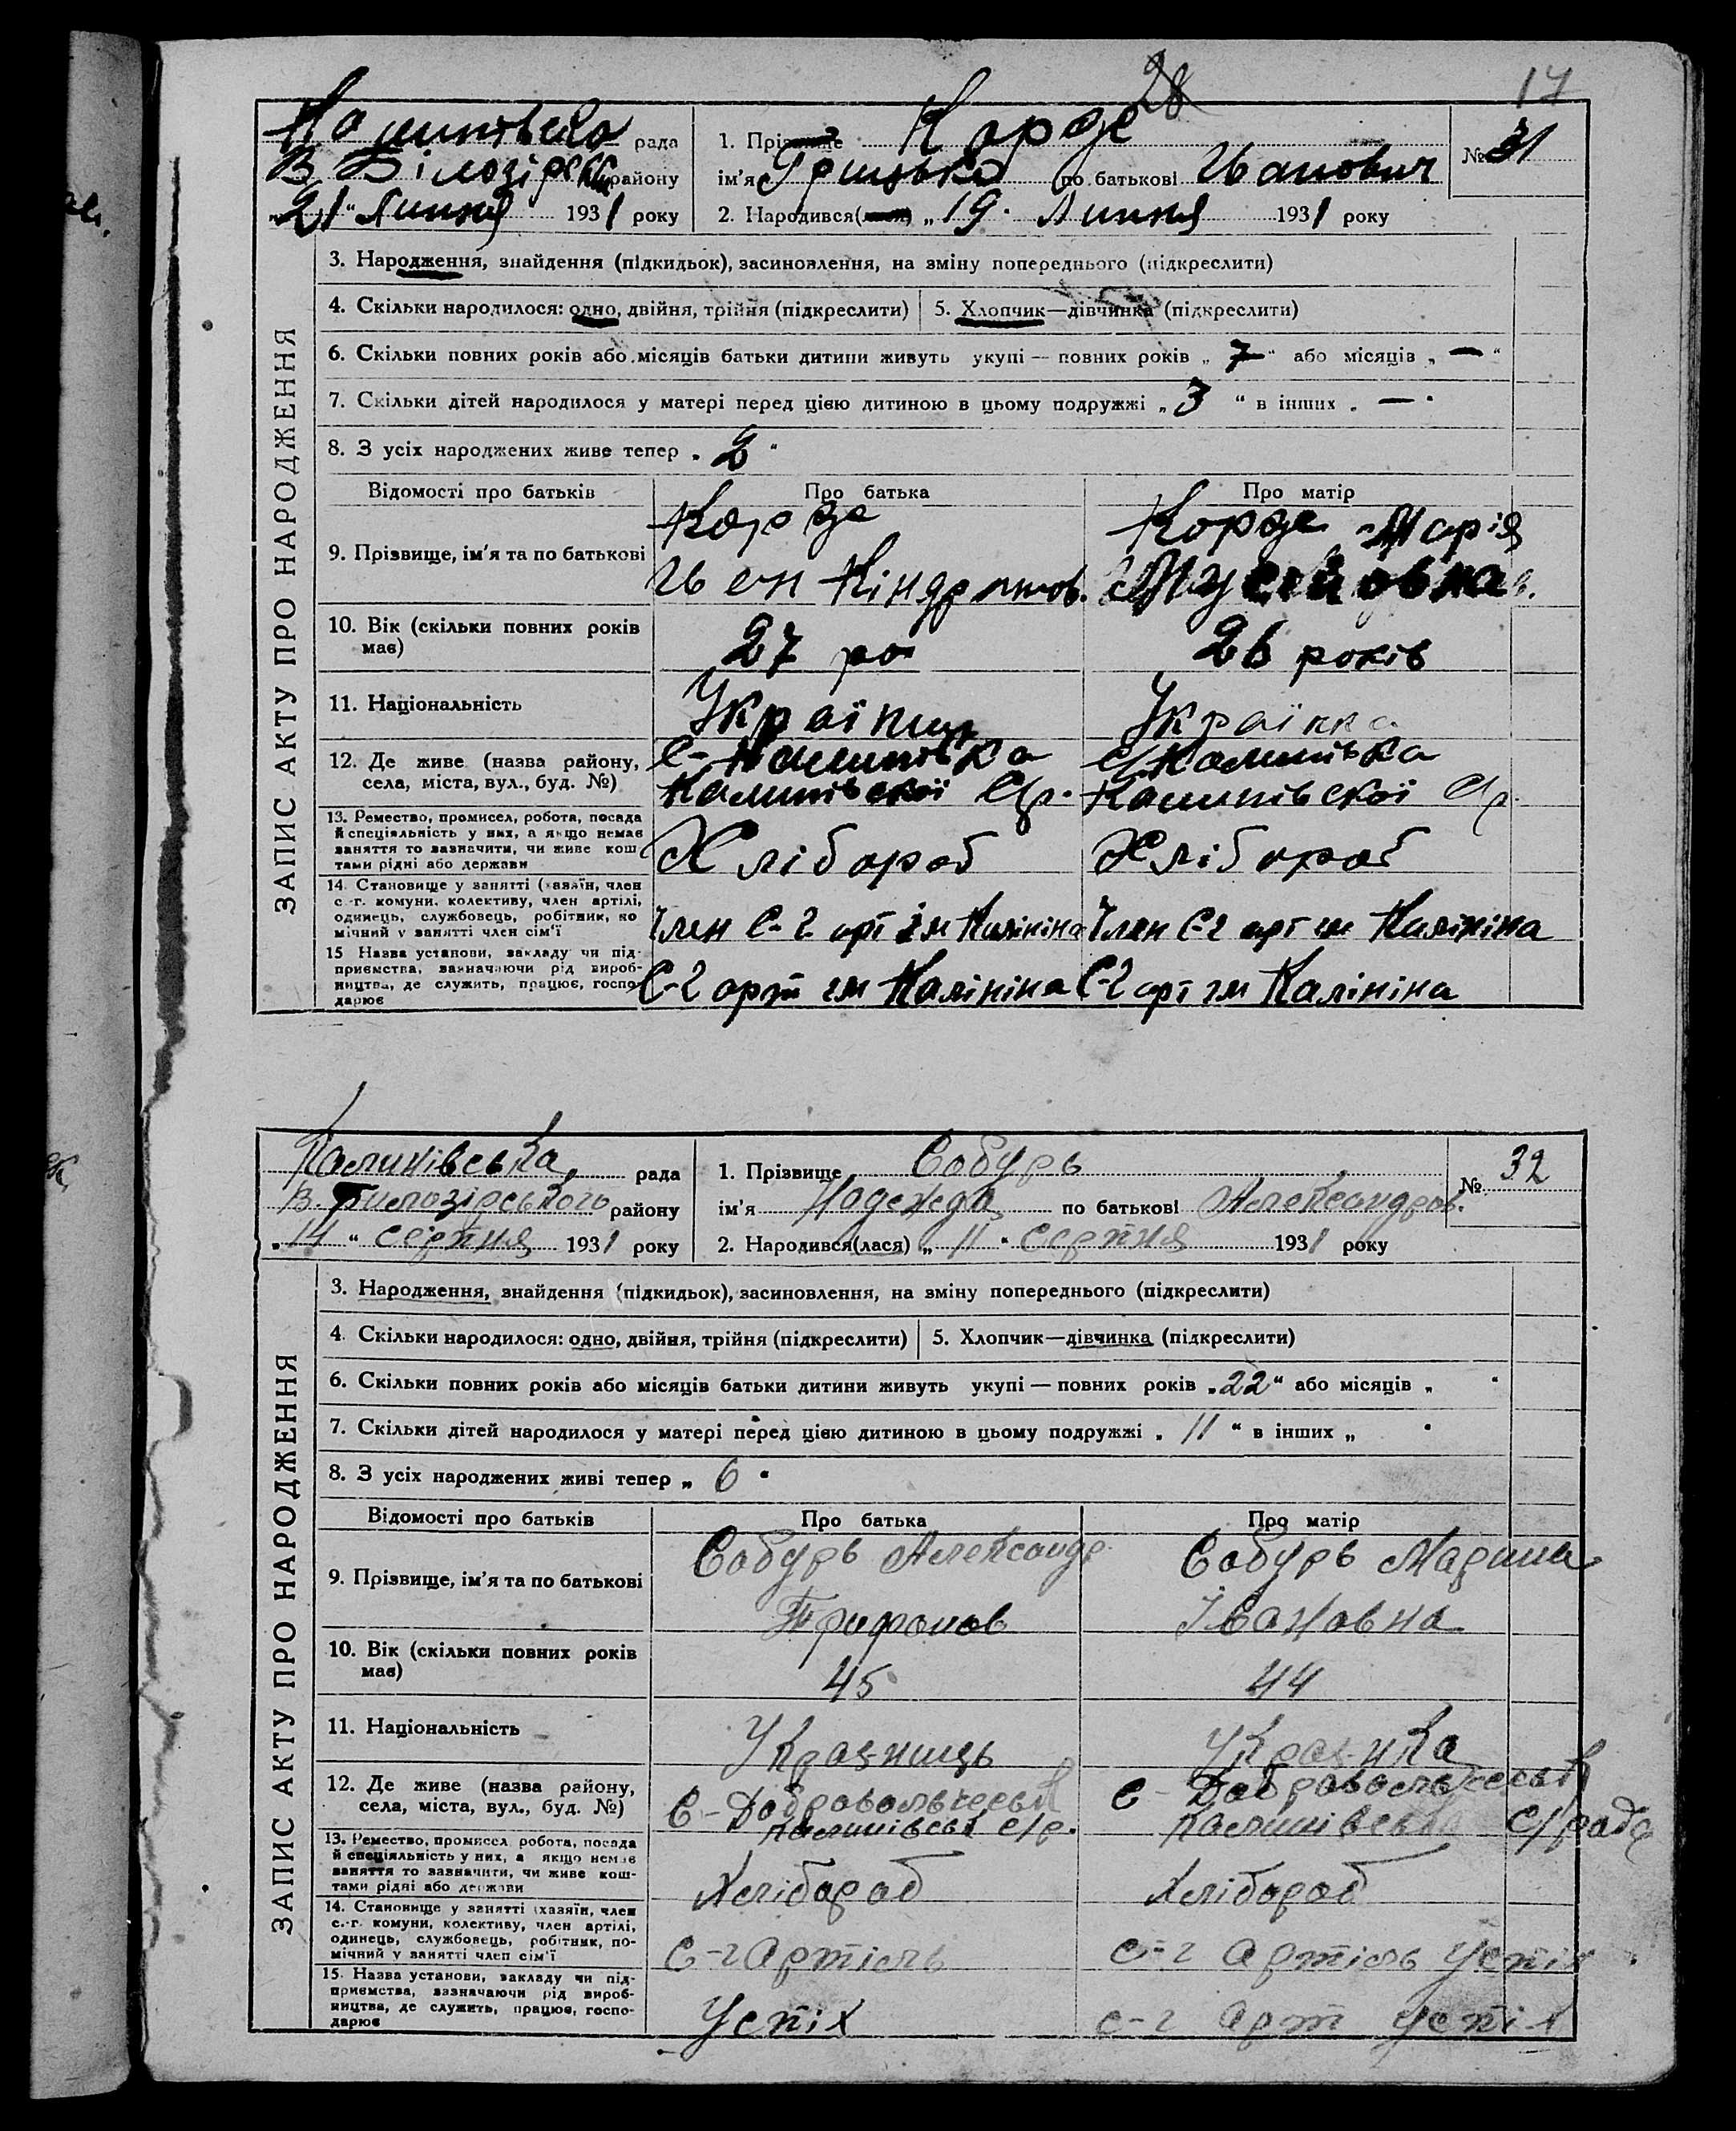 28
17
Калинівська рада
В. Білозірськ району
„21“ Липня 1931 року
1. Прізвище Корже
ім'я Грицько по батькові Іванович
2. Народився(лася) „19. Липня 1931 року
№ 31
ЗАПИС АКТУ ПРО НАРОДЖЕННЯ
3. Народження, знайдення (підкидьок), засиновлення, на зміну попереднього (підкреслити)
4. Скільки народилося: одно, двійня, трійня (підкреслити) 5. Хлопчик—дівчинка (підкреслити)
6. Скільки повних років або місяців батьки дитини живуть укупі — повних років „ 7 “ або місяців „ — “
7. Скільки дітей народилося у матері перед цією дитиною в цьому подружжі „ 3 “ в інших „ — “
8. З усіх народжених живе тепер „ 2 “
Відомості про батьків Про батька Про матір
9. Прізвище, ім'я та по батькові
Корже
Іван Кіндратов.
Корже Марія
10. Вік (скільки повних років має)
27 ро
26 років
11. Національність
Українц
Українка
12. Де живе (назва району, села, міста, вул., буд. №)
с- Калинівка
Калинівської с/р.
с/Калинівка
Калинівської с/р.
13. Ремество, промисел, робота, посада
й спеціяльність у них, а якщо немає
заняття то зазначити, чи живе кош
тами рідні або держави
Хлібороб
Хлібороб
14. Становище у занятті (хазяїн, член
с.-г. комуни, колективу, член артілі,
одинець, службовець, робітник, по
мічний у занятті член сім'ї
Член С-г арт ім Калініна
Член С-г арт ім Калініна
15 Назва установи, закладу чи під-
приємства, зазначаючи рід вироб-
ництва, де служить, працює, госпо-
дарює
С-г арт ім Калініна
С-г арт ім Калініна
Калинівська рада
В. Билозірського району
„14“ серпня 1931 року
1. Прізвище Собурь
ім'я Надежда по батькові Александров.
2. Народився(лася) „11“ Серпня 1931 року
№ 32
ЗАПИС АКТУ ПРО НАРОДЖЕННЯ
3. Народження, знайдення (підкидьок), засиновлення, на зміну попереднього (підкреслити)
4. Скільки народилося: одно, двійня, трійня (підкреслити) 5. Хлопчик—дівчинка (підкреслити)
6. Скільки повних років або місяців батьки дитини живуть укупі — повних років „22“ або місяців „ “
7. Скільки дітей народилося у матері перед цією дитиною в цьому подружжі „ 11 “ в інших „ “
8. З усіх народжених живі тепер „ 6 “
Відомості про батьків Про батька Про матір
9. Прізвище, ім'я та по батькові
Собурь Александр.
Трифонов
Собурь Марина
Івановна
10. Вік (скільки повних років має)
45
44
11. Національність
Украинць
Украинка
12. Де живе (назва району, села, міста, вул., буд. №)
с - Добровольческ
Калинівськ с/р.
с - Добровольческ
Калинівськ с/рада
13. Ремество, промисел, робота, посада
й спеціяльність у них, а якщо немає
заняття то зазначити, чи живе кош-
тами рідні або держави
Хлібороб
Хлібороб
14. Становище у занятті (хазяїн, член
с.-г. комуни, колективу, член артілі,
одинець, службовець, робітник, по-
мічний у занятті член сім'ї
С-г Артіль
с-г Артіль Успіх
15. Назва установи, закладу чи під-
приємства, зазначаючи рід вироб-
ництва, де служить, працює, госпо-
дарює
Успіх
с-г арт Успіх